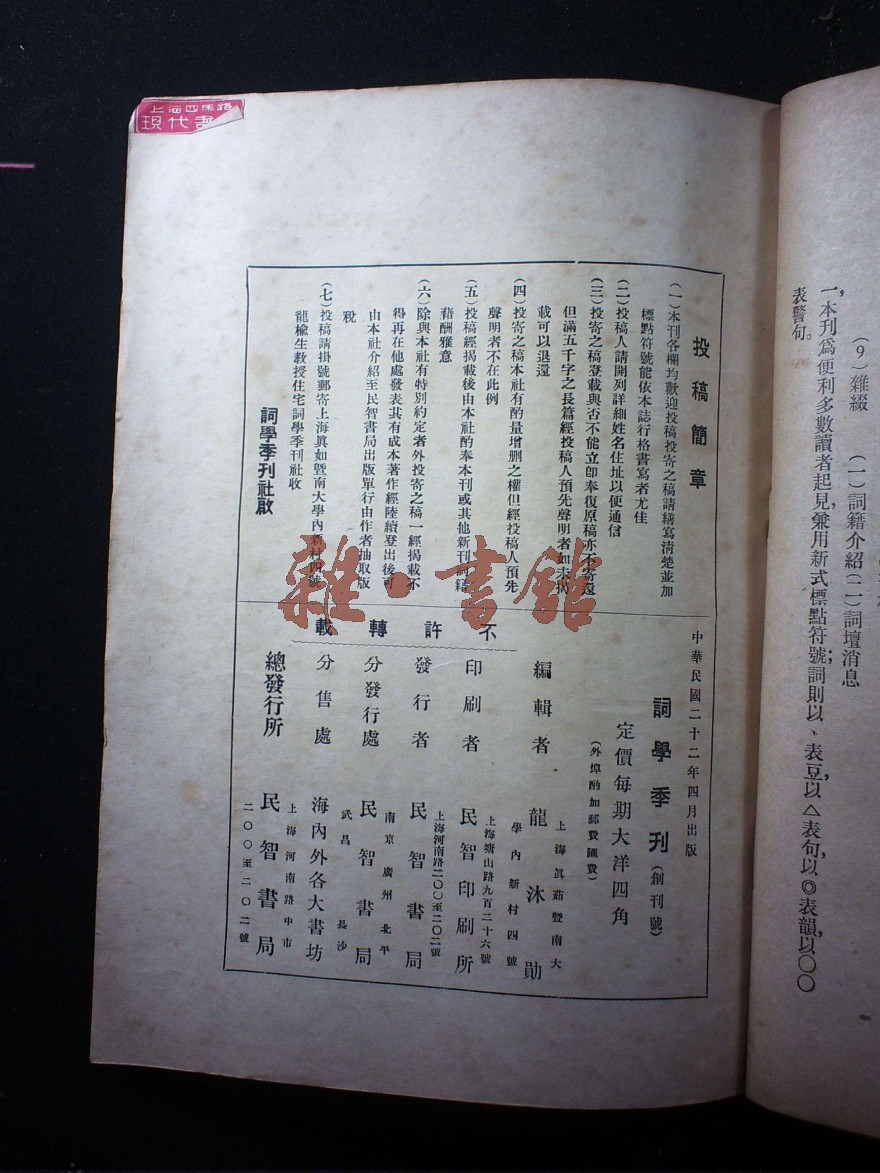 上海四馬路
現代書
(9)雜綴 (一)詞籍介紹(二)詞壇消息
一,本刊爲便利多數讀者起見,兼用新式標點符號;詞則以、表豆,以△表句,以◎表韻,以○○
表警句。
投稿簡章
(一)本刊各欄均歡迎投稿投寄之稿請繕寫清楚並加
標點符號能依本誌行格書寫者尤佳
(二)投稿人請開列詳細姓名住址以便通信
(三)投寄之稿登載與否不能立卽奉復原稿亦不寄還
但滿五千字之長篇經投稿人預先聲明者如未揭
載可以退還
(四)投寄之稿本社有酌量增删之權但經投稿人預先
聲明者不在此例
(五)投稿經揭載後由本社酌奉本刊或其他新刊詞籍
藉酬雅意
(六)除與本社有特別約定者外投寄之稿一經揭載不
得再在他處發表其有成本著作經陸續登出後可
由本社介紹至民智書局出版單行由作者抽取版
稅
(七)投稿請掛號郵寄上海眞如暨南大學內新村四號
龍楡生教授住宅詞學季刊社收
詞學季刊社啟
雜·書館
中華民國二十二年四月出版
詞學季刊(創刊號)
定價每期大洋四角
(外埠酌加郵費匯費)
不許轉載
編輯者 龍沐勛
上海眞茹暨南大
學內新村四號
印刷者 民智印刷所
上海塘山路九百二十六號
發行者 民智書局
上海河南路二〇〇至二〇二號
分發行處 民智書局
南京 廣州 北平
武昌 長沙
分售處 海內外各大書坊
總發行所 民智書局
上海河南路中市
二〇〇至二〇二號